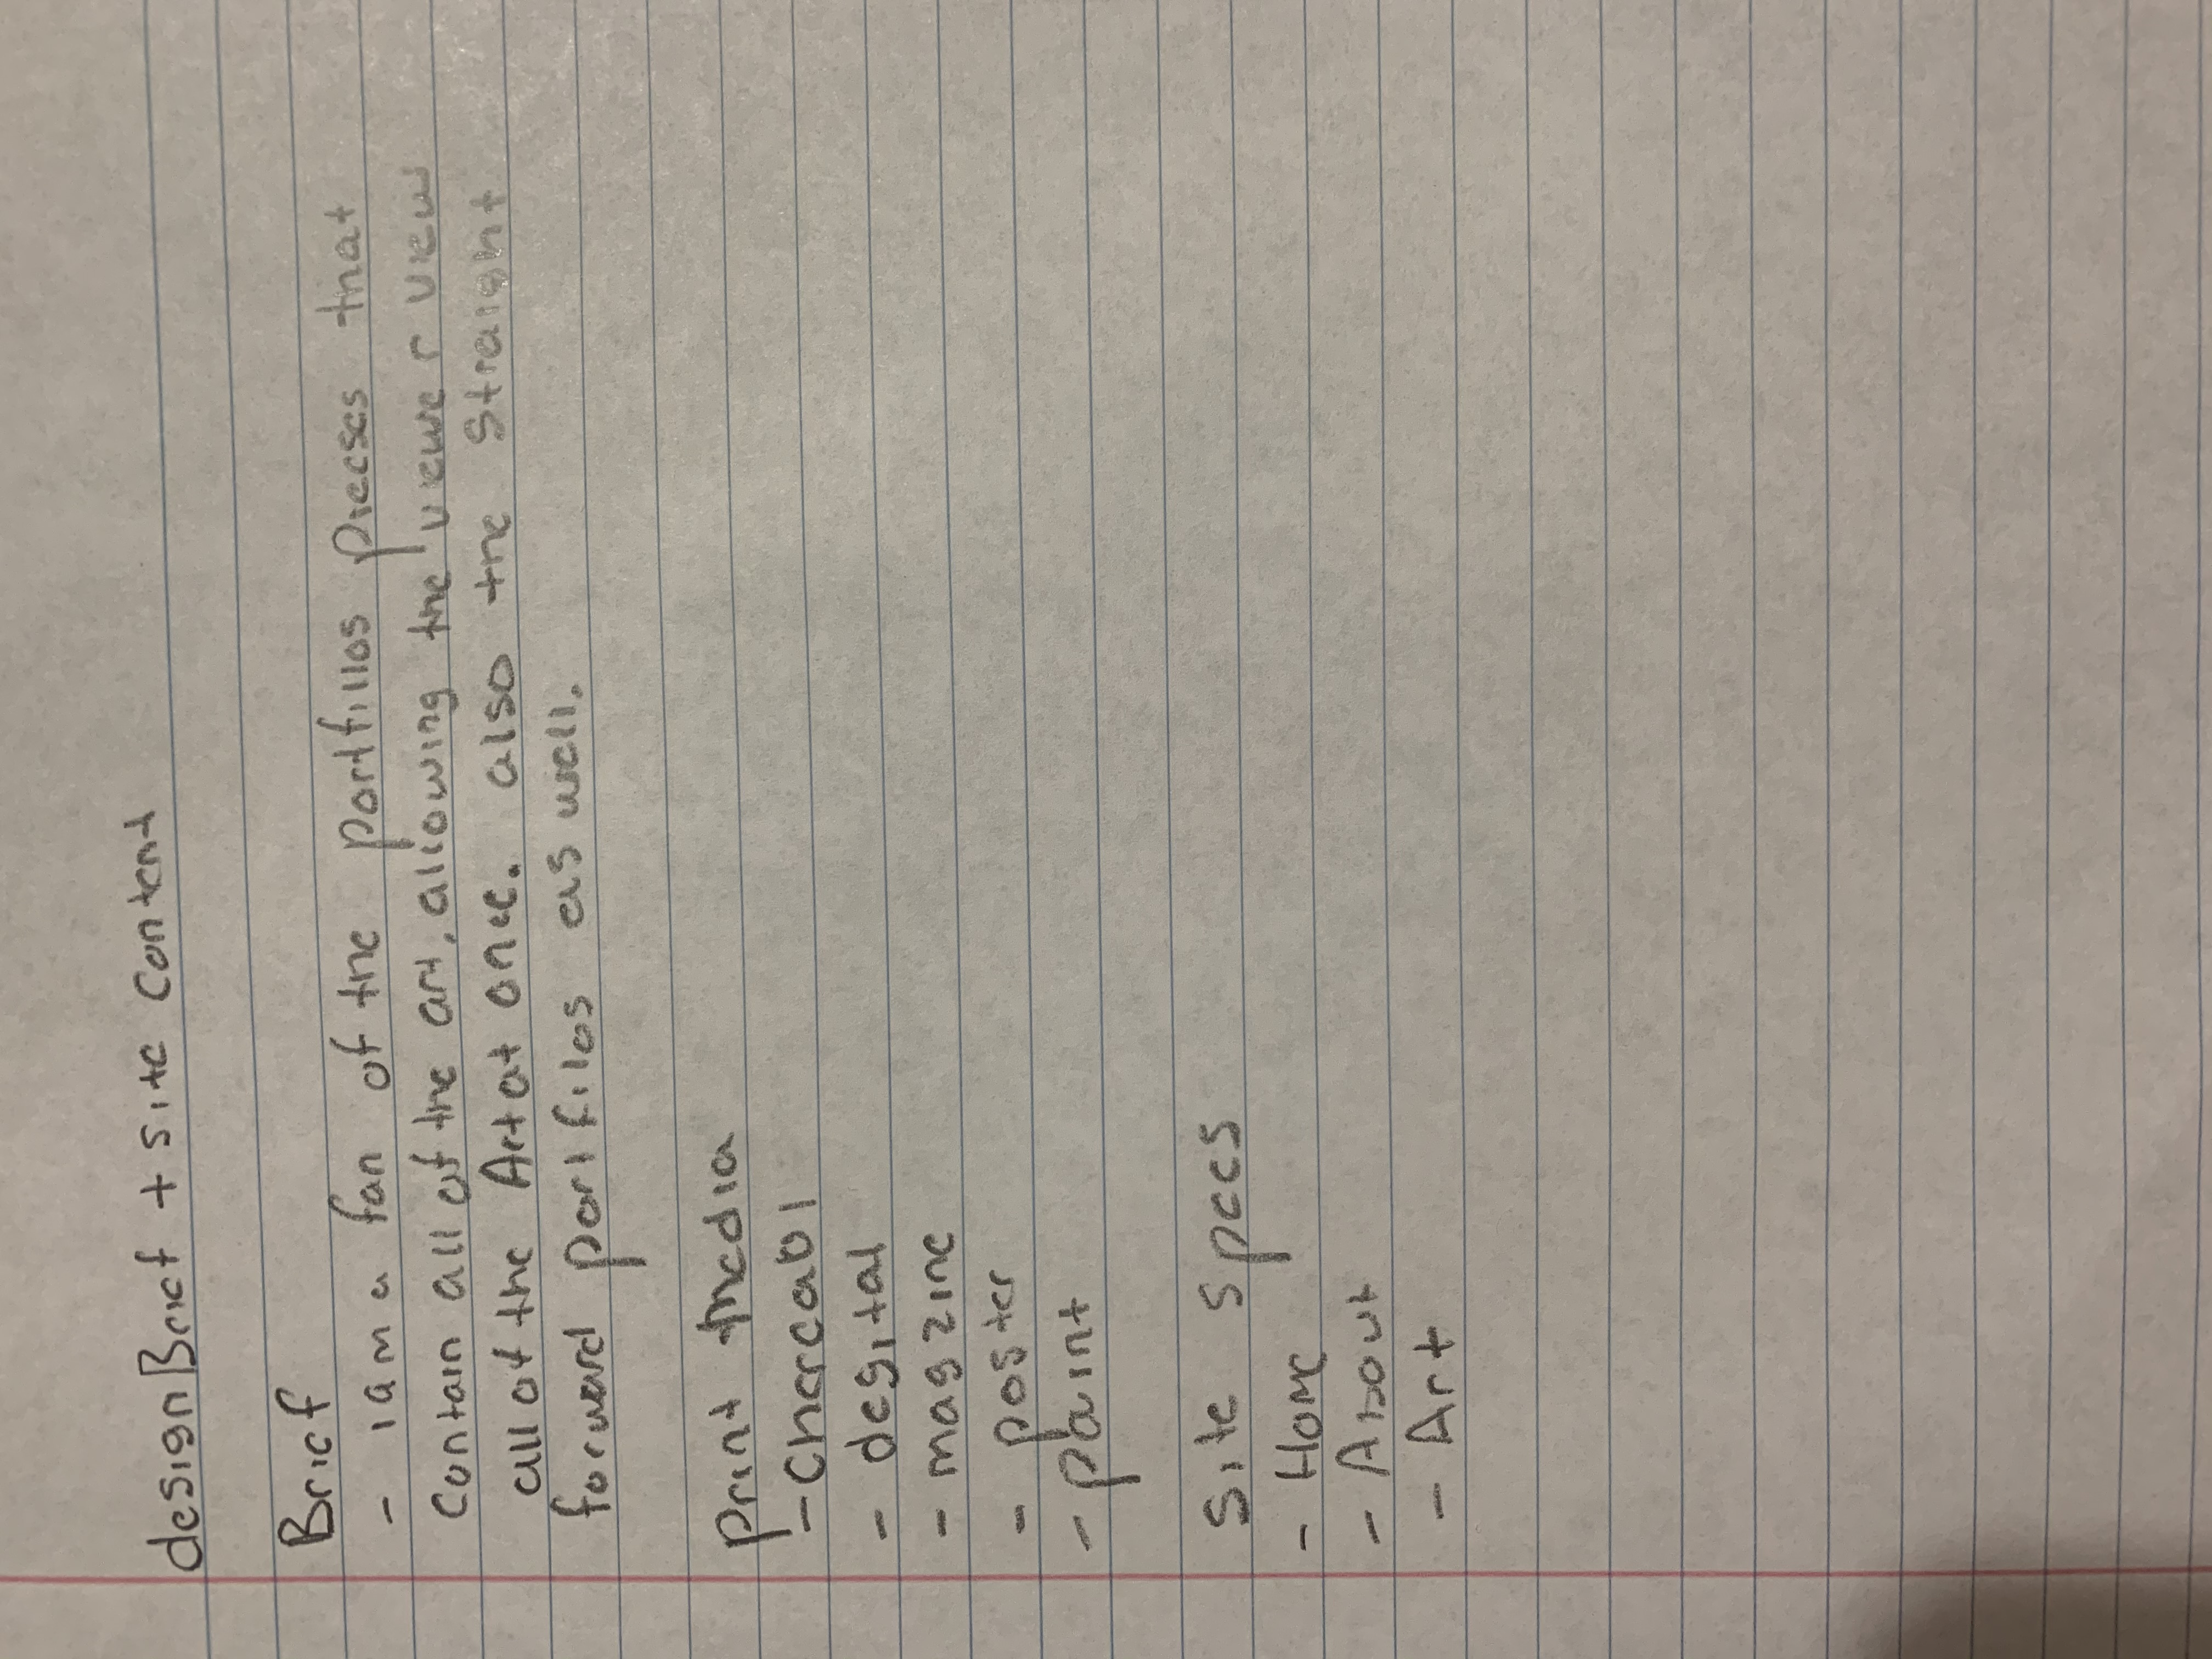 design Brief + site content
Brief
- I am a fan of the portfillos piecses that
contain all of the art, allowing the viewer view
all of the Art at once. also the straight
forward portfilos as well.
print media
- Charcaol
- desital
- magzine
- poster
- paint
site specs
- Home
- About
- Art